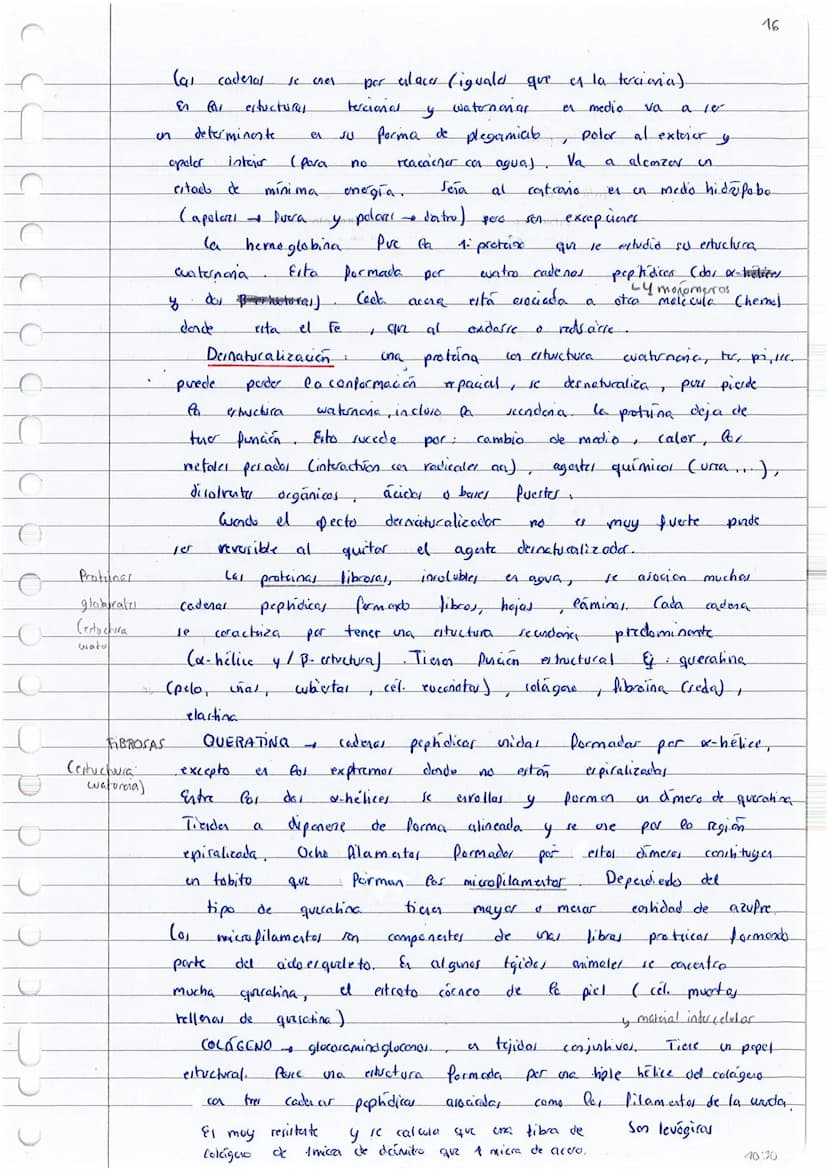 16
Las cadenas se unen por enlaces (iguales que en la terciaria)
En las estructuras terciarias y cuaternarias el medio va a ser
un determinante en su forma de plegamiento, polar al exterior y
apolar interior (para no reaccionar con agua). Va a alcanzar un
estado de mínima energía. Sería al contrario en un medio hidrófobo
(apolares → fuera y polares → dentro) pero son excepciones
La hemoglobina fue la 1ª proteína que se estudió su estructura
cuaternaria. Esta formada por cuatro cadenas peptídicas (dos α-hélices
└4 monómeros
y dos β-). Cada una está asociada a otra molécula (hemo)
donde esta el Fe, que al oxidarse o reducirse.
Desnaturalización: una proteína con estructura cuaternaria, ter, pi, sec.
puede perder la conformación espacial, se desnaturaliza, pues pierde
la estructura cuaternaria, incluso la secundaria. La proteína deja de
tener función. Esto sucede por: cambio de medio, calor, los
metales pesados (interacción con radicales aa), agentes químicos (urea...),
disolventes orgánicos, ácidos o bases fuertes.
Cuando el efecto desnaturalizador no es muy fuerte puede
ser reversible al quitar el agente desnaturalizador.
Proteínas
globurales
(estructura
cuater
Las proteínas fibrosas, insolubles en agua, se asocian muchas
cadenas peptídicas formando fibras, hojas, láminas. Cada cadena
se caracteriza por tener una estructura secundaria predominante
(α-hélice y/β-estructura). Tienen función estructural Ej: queratina
(pelo, uñas, cubiertas, cél. eucariotas), colágeno, fibroína (seda),
elastina
FIBROSAS
(estructura
cuaternaria)
QUERATINA → cadenas peptídicas unidas formadas por α-hélice,
excepto en los extremos donde no están espiralizadas
Entre las dos α-hélices se enrollan y forman un dímero de queratina
Tienden a disponerse de forma alineada y se une por la región
espiralizada. Ocho filamentos formados por estos dímeros constituyen
un tubito que forman los microfilamentos. Dependiendo del
tipo de queratina tienen mayor o menor cantidad de azufre.
Los microfilamentos son componentes de unas fibras proteicas formando
parte del citoesqueleto. En algunos tejidos animales se concentra
mucha queratina, el estrato córneo de la piel (cél. muertas
rellenas de queratina)
y material intercelular
COLÁGENO → glucosaminoglucanos, en tejidos conjuntivos. Tiene un papel
estructural. Posee una estructura formada por una triple hélice del colágeno
con tres cadenas peptídicas asociadas, como los filamentos de la cuerda.
Es muy resistente y se calcula que una fibra de Son levógiras
colágeno de 1 micra de diámetro que 1 micra de acero.